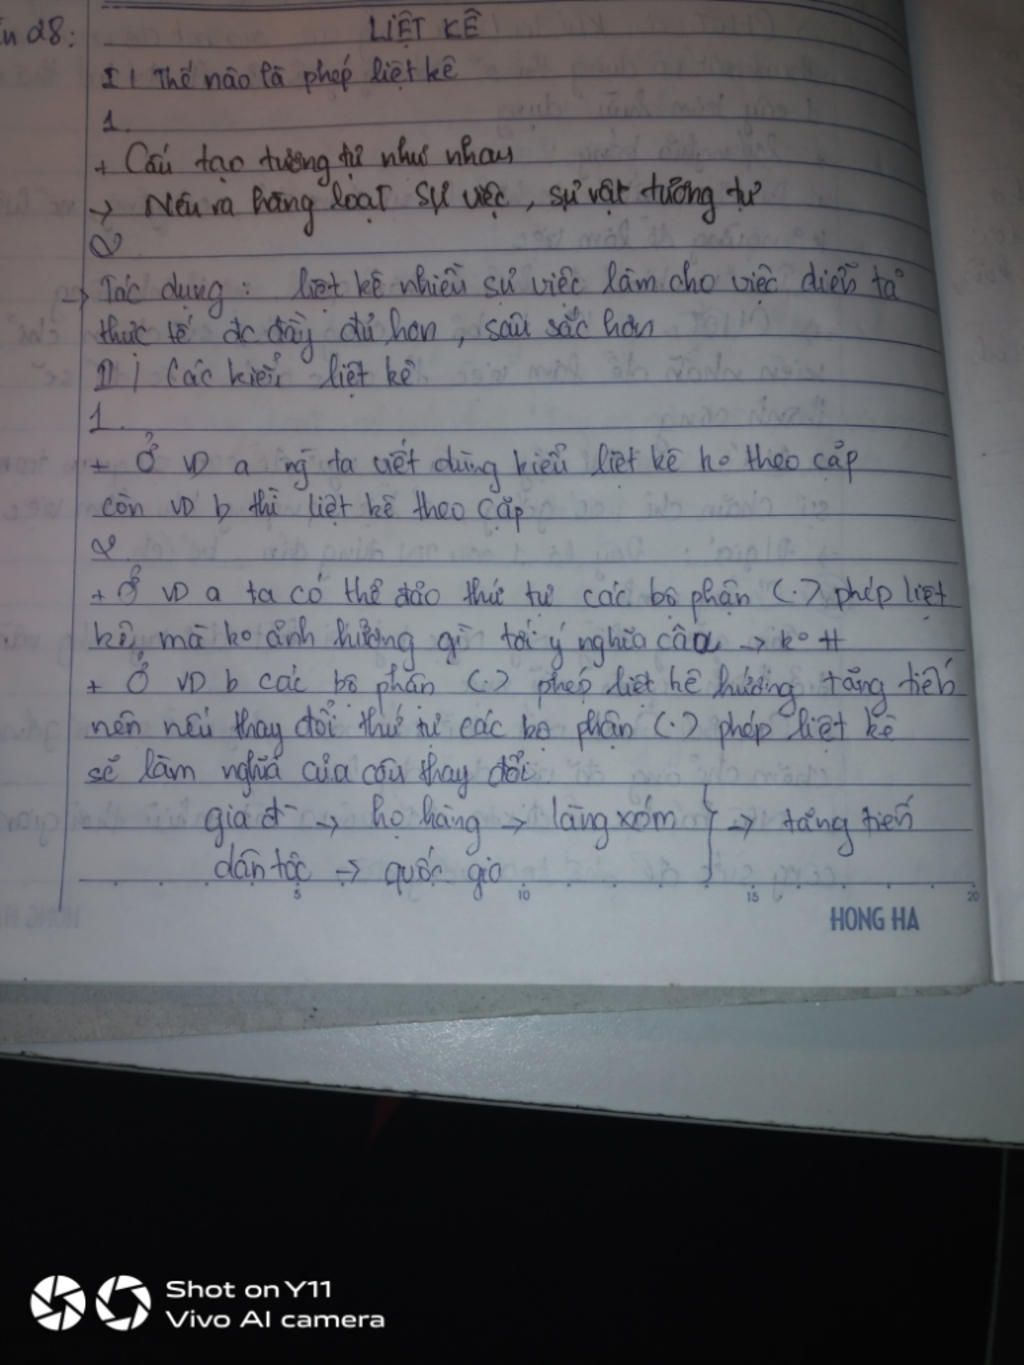 28:
LIỆT KÊ
I / Thế nào là phép liệt kê
1.
+ Cấu tạo tương tự như nhau
→ Nêu ra hàng loạt sự việc, sự vật tương tự
2
→ Tác dụng : liệt kê nhiều sự việc làm cho việc diễn tả
thực tế đc đầy đủ hơn, sâu sắc hơn
II / Các kiểu liệt kê
1.
+ Ở VD a ng ta viết dùng kiểu liệt kê ko theo cặp
còn VD b thì liệt kê theo cặp
2.
+ Ở VD a ta có thể đảo thứ tự các bộ phận (.) phép liệt
kê mà ko ảnh hưởng gì tới ý nghĩa câu → ko tt
+ Ở VD b các bộ phận (.) phép liệt kê hướng tăng tiến
nên nếu thay đổi thứ tự các bộ phận (.) phép liệt kê
sẽ làm nghĩa của câu thay đổi
gia đ → họ hàng → làng xóm } → tăng tiến
dân tộc → quốc gia
5 10 15 20
HONG HA
Shot on Y11
Vivo AI camera